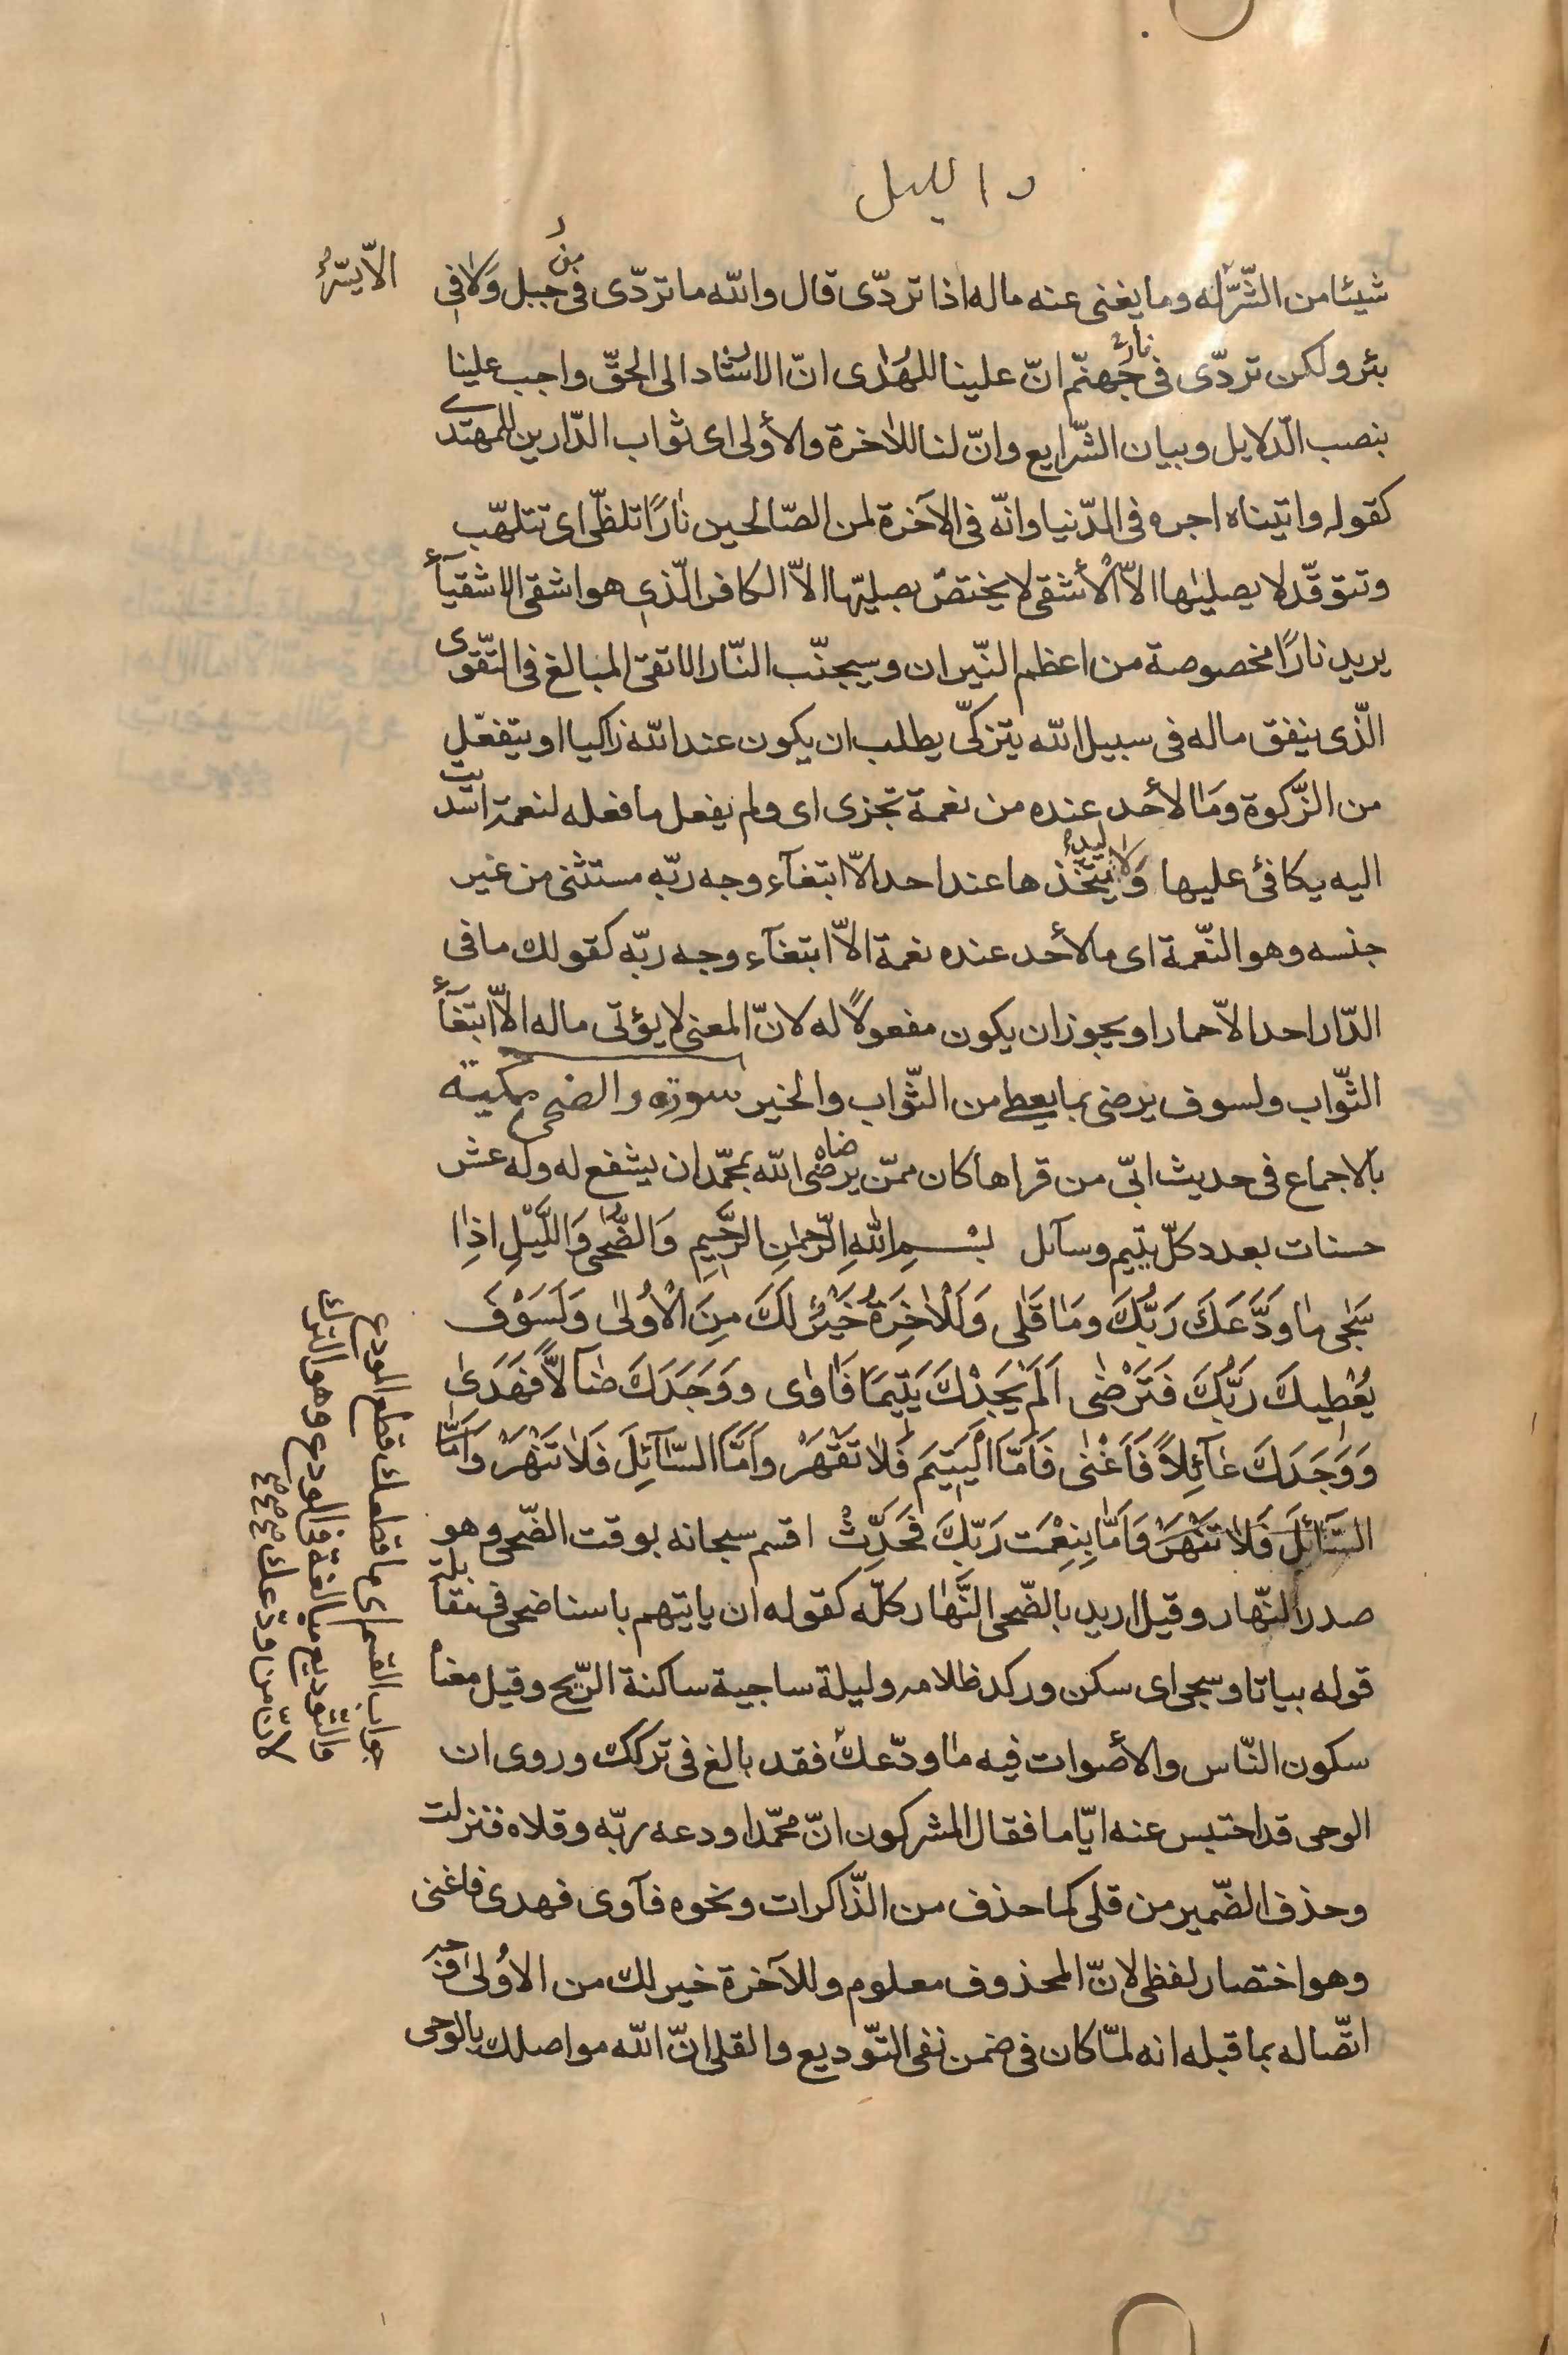 والليل
شيئا من الشّرّ الّا يسّره له وما يغنى عنه ماله اذا تردّى قال والله ما تردّى من فى جبل ولا فى
بئر ولكن تردّى فى نار جهنّم انّ علينا للهدى انّ الارشاد الى الحقّ واجب علينا
بنصب الدّلايل وبيان الشّرايع وانّ لنا للاخرة والأولى اى ثواب الدّارين للمهتدى
كقوله واتيناه اجره فى الدّنيا وانّه فى الآخرة لمن الصّالحين نارًا تلظّى اى تتلهّب
وتتوقّد لا يصليٰها الاّ الأشقى لا يختصّ بصليّها الاّ الكافر الّذى هو اشقى الاشقيآء
يريد نارًا مخصوصة من اعظم النّيران وسيجنّب النّار الاتقى المبالغ فى التّقوى
الّذى ينفق ماله فى سبيل الله يتزكّى يطلب ان يكون عند الله زاكيا او يتفعّل
من الزّكوة وما لأحد عنده من نعمة تجزى اى ولم يفعل ما فعله لنعمة اسديت
اليه يكافئ عليها ولا ليد يتّخذها عند احد الاّ ابتغآء وجه ربّه مستثنى من غير
جنسه وهو النّعمة اى ما لأحد عنده نعمة الاّ ابتغآء وجه ربّه كقولك ما فى
الدّار احد الاّ حمارا ويجوز ان يكون مفعولًا له لانّ المعنى لا يؤتى ماله الاّ ابتغآء
الثّواب ولسوف يرضى بما يعطى من الثّواب والخير سورة والضحى مكية
بالاجماع فى حديث ابىّ من قراها كان ممّن يرضاه الله بمحمّد ان يشفع له وله عشر
حسنات بعدد كلّ يتيم وسآئل بِسْمِ اللهِ الرّحمٰنِ الرَّحِيمِ وَالضُّحٰى وَاللَّيْلِ اذِٰا
سَجٰى مٰا وَدَّعَكَ رَبُّكَ ومَٰا قَلٰى وَلَلْاٰخِرَةُ خَيْرٌ لَكَ مِنَ الْأُولىٰ وَلَسَوْفَ
يُعْطِيكَ رَبُّكَ فَتَرْضٰى اَلَمْ يَجِدْكَ يَتِيمًا فَاٰوٰى ووَجَدَكَ ضٰآلًّا فَهَدىٰ
وَوَجَدَكَ عٰآئِلاً فَاَغْنٰى فَاَمَّا الْيَتِيمَ فَلٰا تَقْهَرْ واَمَّا السّٰآئِلَ فَلٰا تَنْهَرْ وَاَمّٰا
السّٰآئِلَ فَلٰا تَنْهَرْ وَاَمّٰا بِنِعْمَت رَبِّكَ فَحَدِّثْ اقسم سبحانه بوقت الضّحى وهو
صدر النّهار وقيل اريد بالضّحى النّهار كلّه كقوله ان ياتيهم باسنا ضحى فى مقابلة
قوله بياتا وسجى اى سكن وركد ظلامه وليلة ساجية ساكنة الرّيح وقيل معناه
سكون النّاس والأصوات فيه ما ودّعك فقد بالغ فى تركك وروى ان
الوحى قد احتبس عنه ايّاما فقال المشركون انّ محمّدا ودعه ربّه وقلاه فنزلت
وحذف الضّمير من قلى كما حذف من الذّاكرات ونحوه فآوى فهدى فاغنى
وهو اختصار لفظى لانّ المحذوف معلوم وللآخرة خير لك من الاُولىٰ وجه
اتّصاله بما قبله انه لمّا كان فى ضمن نفى التّوديع والقلى انّ الله مواصلك بالوحى
جواب القسم اى ما قطعك قطع المودع
والتّوديع مبالغة فى الودع وهو الترك
لانّ من ودّعك